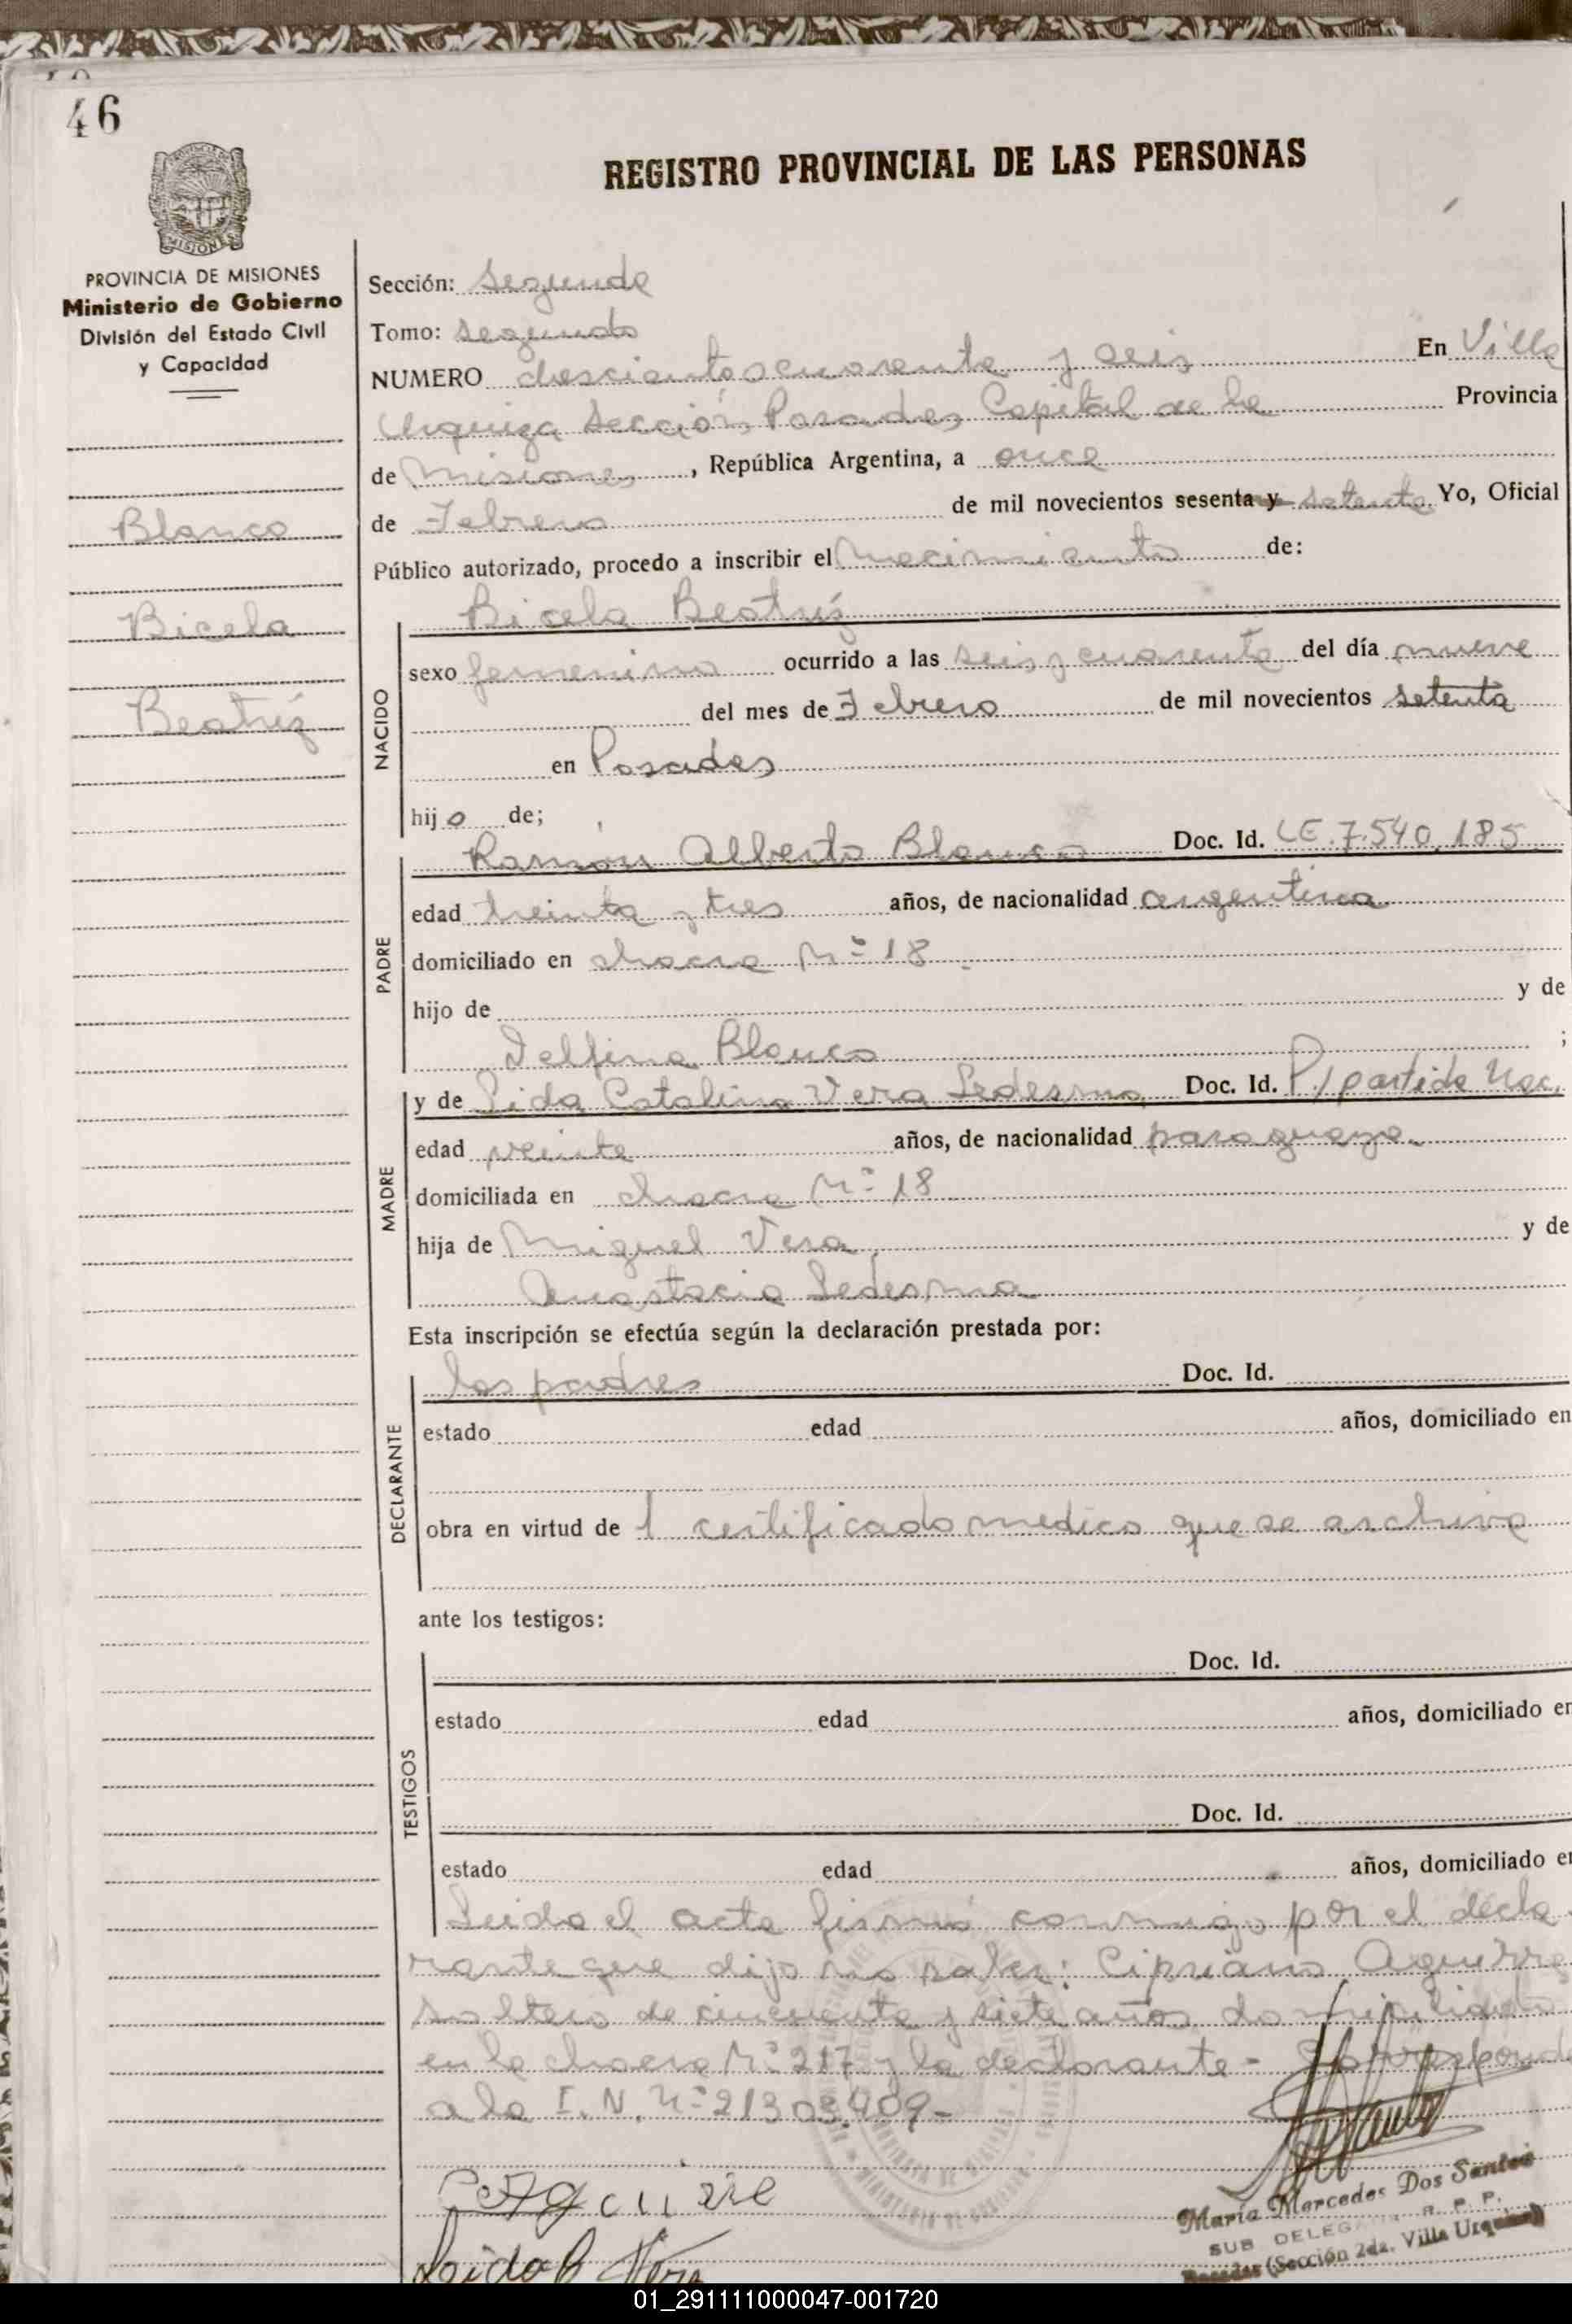 46
REGISTRO PROVINCIAL DE LAS PERSONAS
MISIONES
PROVINCIA DE MISIONES
Ministerio de Gobierno
División del Estado Civil
y Capacidad
Blanco
Bicela
Beatríz
Sección: Segunda
Tomo: segundo
NUMERO doscientos cuarenta y seis En Villa
Urquiza Sección, Posadas, Capital de la Provincia
de Misiones, República Argentina, a once
de Febrero de mil novecientos sesenta y setenta Yo, Oficial
Público autorizado, procedo a inscribir el nacimiento de:
Bicela Beatríz
NACIDO
sexo femenino ocurrido a las seis y cuarenta del día nueve
del mes de Febrero de mil novecientos setenta
en Posadas
hijo de;
Ramón Alberto Blanco Doc. Id. LE. 7.540.185
PADRE
edad treinta y tres años, de nacionalidad argentina
domiciliado en chacra Nº 18
hijo de y de
Delfina Blanco ;
y de Lida Catalina Vera Ledesma Doc. Id. P/partida Nac.
MADRE
edad veinte años, de nacionalidad paraguaya
domiciliada en chacra Nº 18
hija de Miguel Vera y de
Anastacia Ledesma
Esta inscripción se efectúa según la declaración prestada por:
los padres Doc. Id.
DECLARANTE
estado edad años, domiciliado en
obra en virtud de 1 certificado medico que se archiva
ante los testigos:
Doc. Id.
TESTIGOS
estado edad años, domiciliado en
Doc. Id.
estado edad años, domiciliado en
Leida el acta firmó conmigo por el decla
rante que dijo no saber: Cipriano Aguirre
soltero de cincuenta y siete años domiciliado
en la chacra Nº 217 y la declarante - Corresponde
a la I. N. Nº 21303.409-
C. Aguirre
Leida C Vera
María Mercedes Dos Santos
SUB DELEG R. P. P.
Posadas (Sección 2da. Villa Urquiza)
01_291111000047-001720